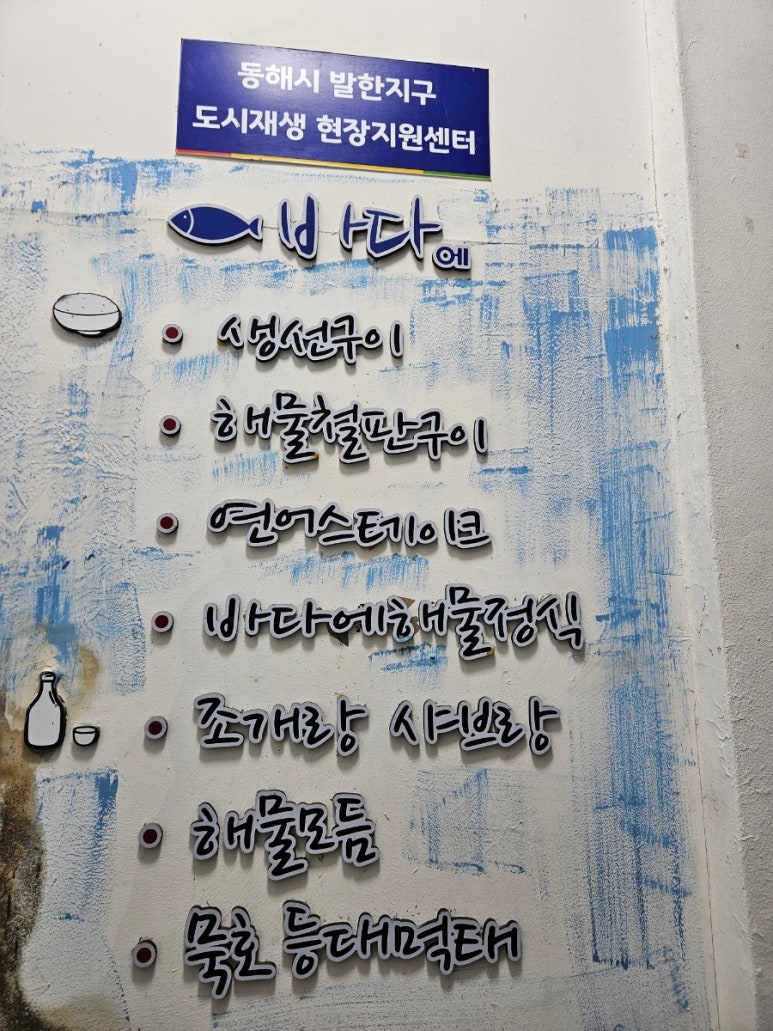 동해시 발한지구
도시재생 현장지원센터
바다에
생선구이
해물철판구이
연어스테이크
바다에해물정식
조개랑 샤브랑
해물모듬
묵호 등대먹태